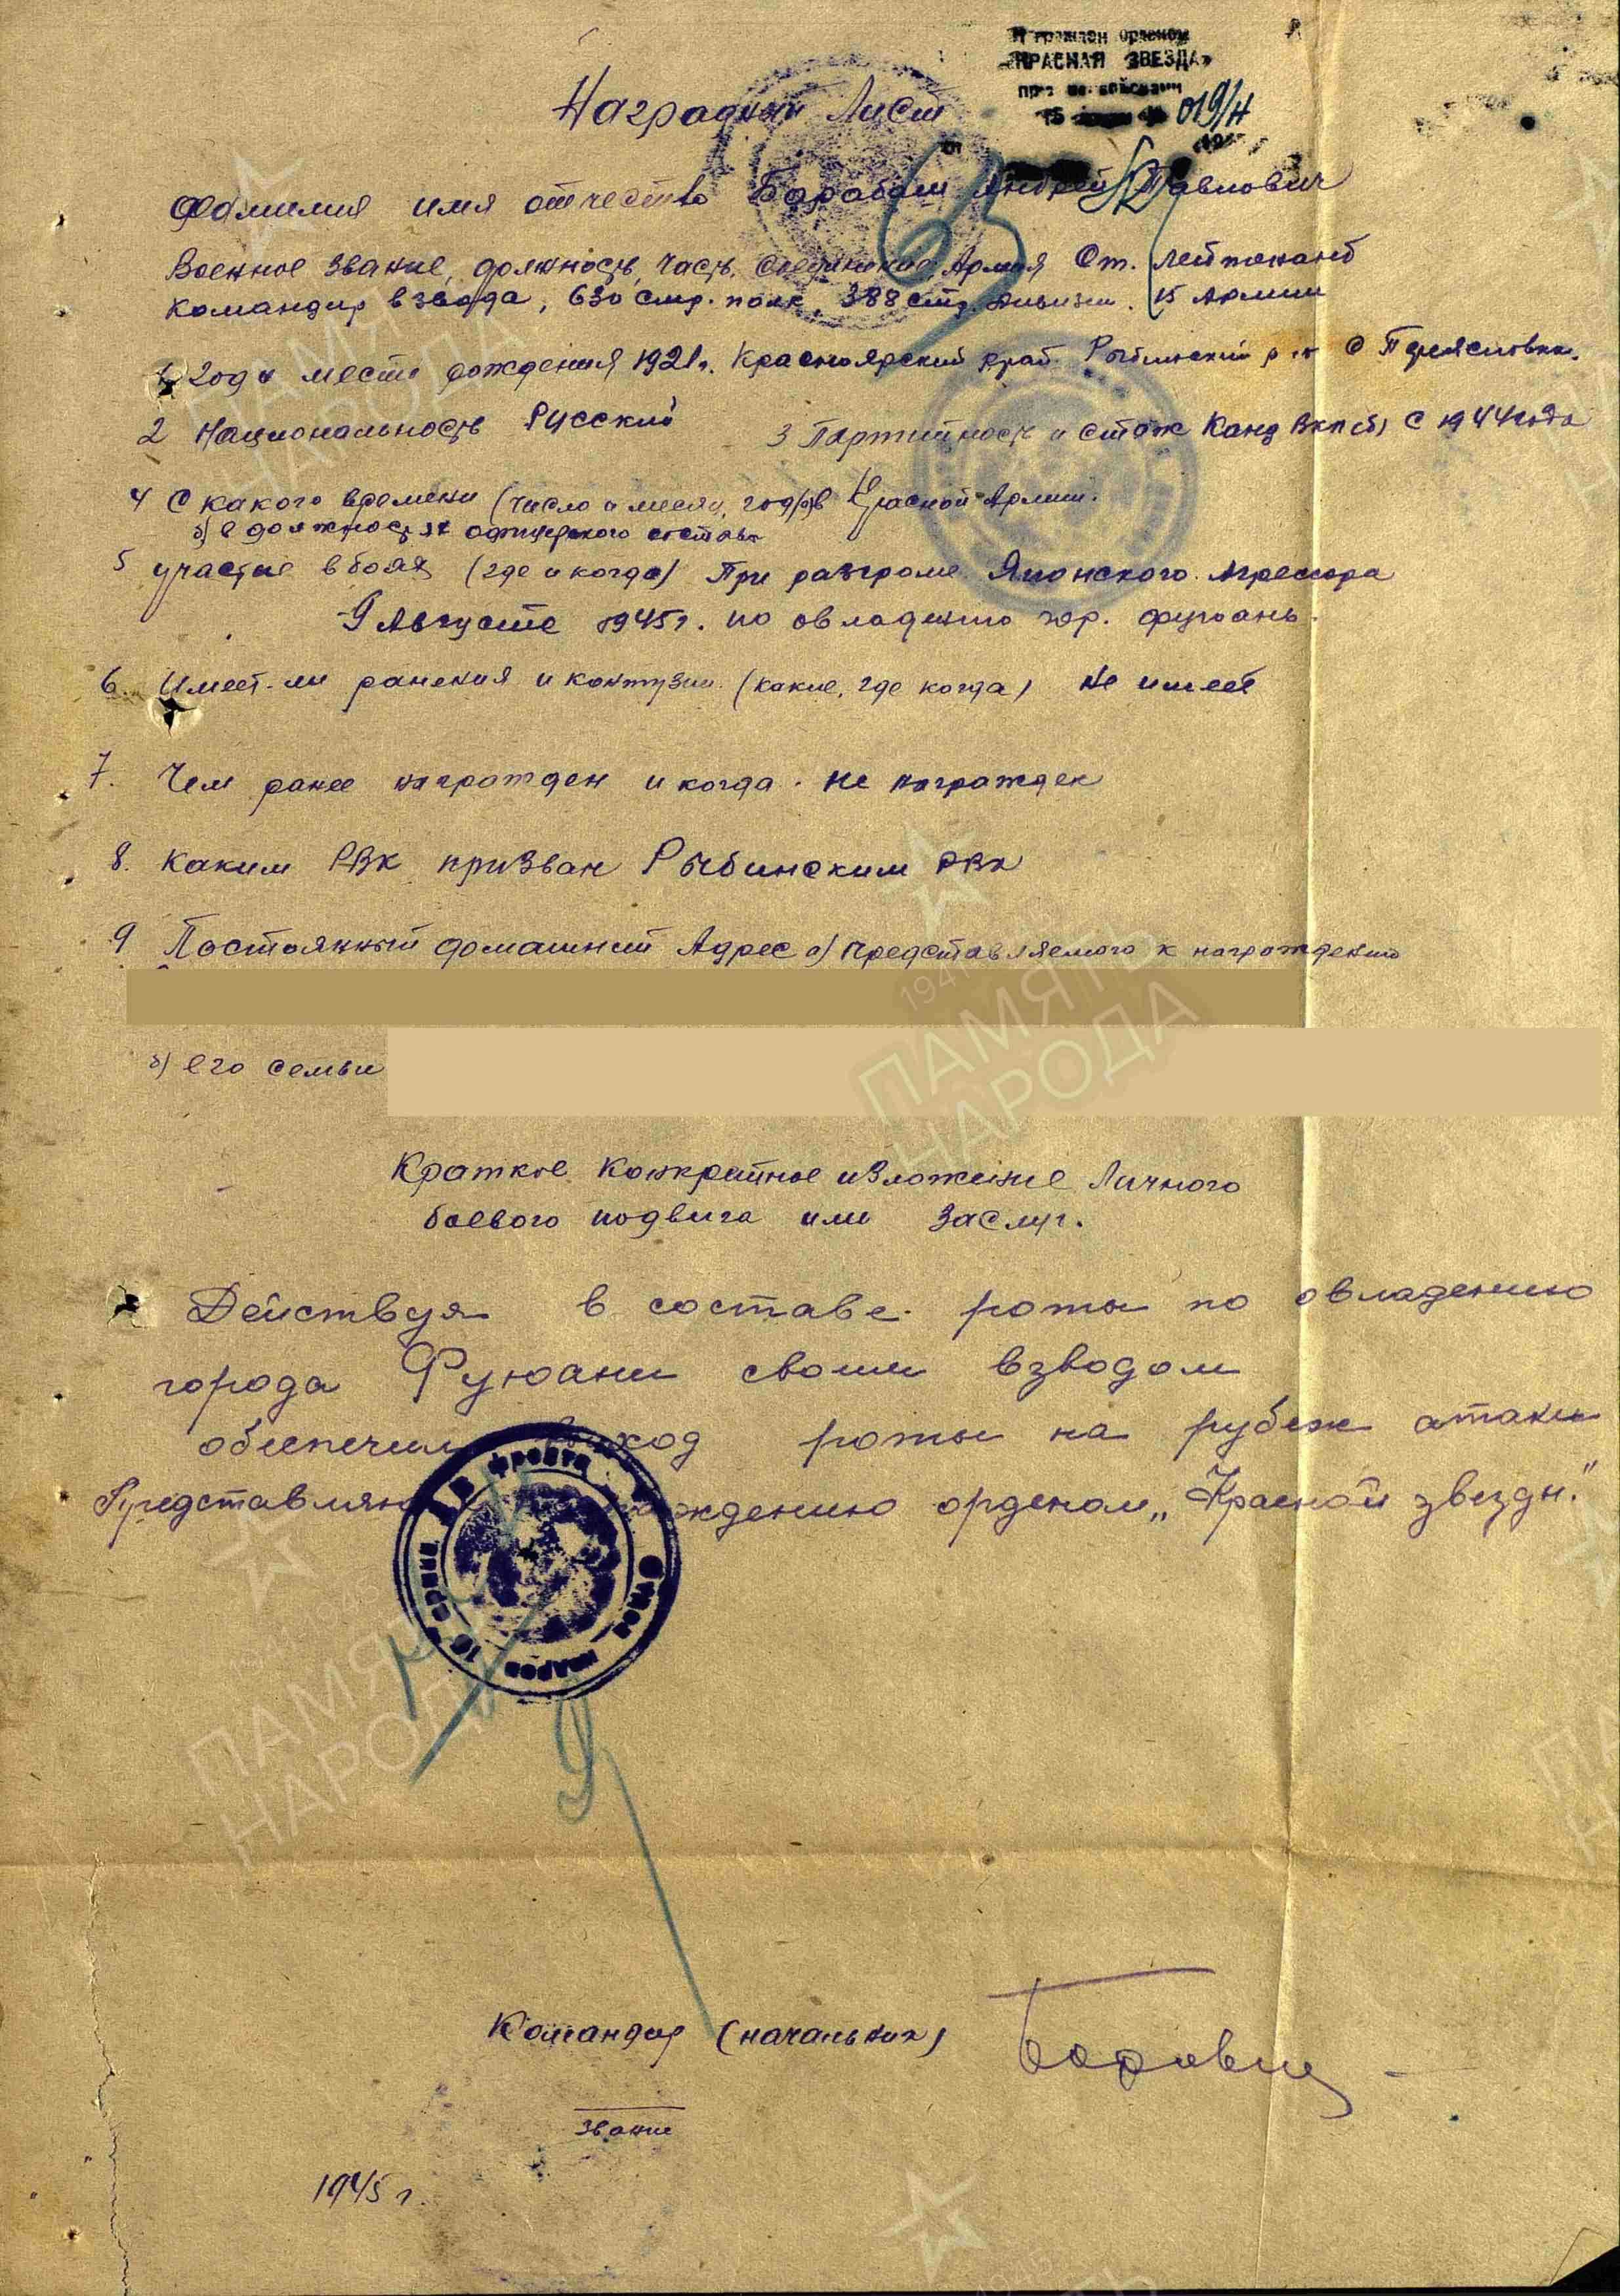 Награжден орденом
«КРАСНАЯ ЗВЕЗДА»
019/н
Наградной Лист
Фамилия имя отчество Барабаш Андрей Павлович
Военное звание, должность, часть, соединение, Армия Ст. лейтенант
командир взвода, 630 стр. полк, 388 стр. дивизии. 15 Армии
1 Год и место рождения 1921г. Красноярский край. Рыбинский р-н
2 Национальность Русский 3 Партийность и стаж Канд ВКП(б) с 1944 года
4 С какого времени (число и месяц, год) а) в Красной Армии.
б) в должностях офицерского состава
5 участие в боях (где и когда) При разгроме Японского Агрессора
9 Августа 1945г. по овладению гор. Фуюань.
6. Имеет-ли ранения и контузии (какие, где когда) Не имеет
7. Чем ранее награжден и когда. не награжден
8. Каким РВК призван Рыбинским РВК
9 Постоянный домашний Адрес а) представляемого к награждению
б) его семьи
Краткое конкретное изложение Личного
боевого подвига или заслуг.
Действуя в составе роты по овладению
города Фуюани своим взводом
обеспечил выход роты на рубеж атаки
Представляю награждению орденом „Красной звезды."
фронта
Отдел кадров 15 армии
Командир (начальник)
звание
1945 г.
ПАМЯТЬ
НАРОДА